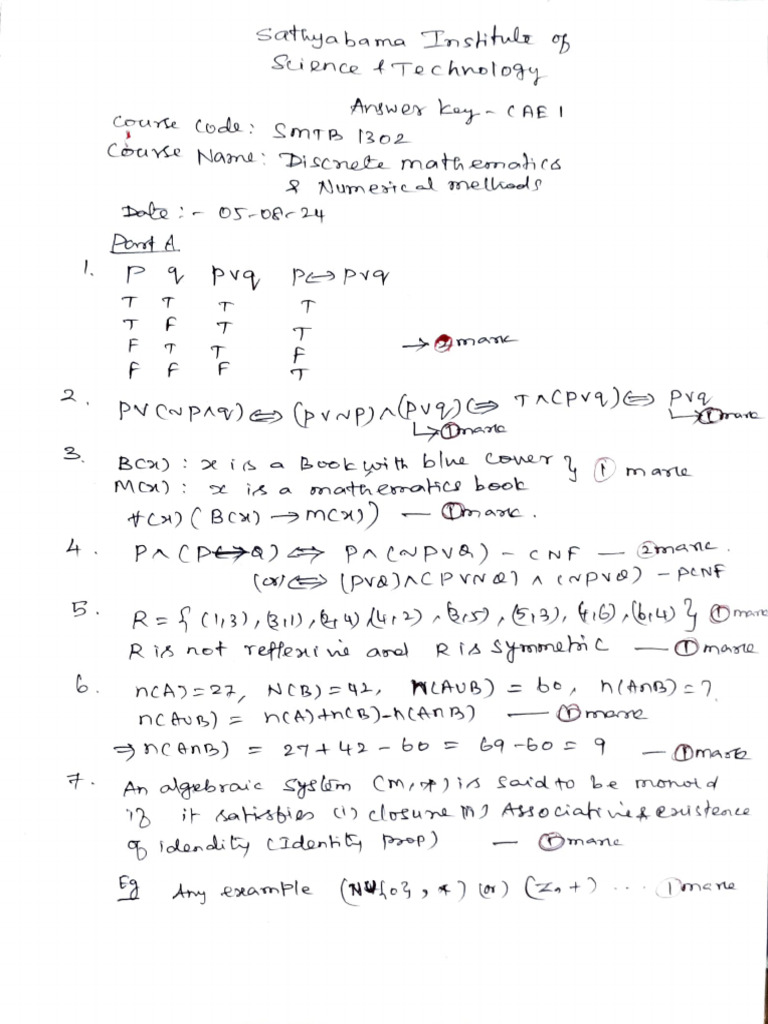 Sathyabama Institute of
Science & Technology
Answer Key - CAE 1
Course Code: SMTB 1302
Course Name: Discrete mathematics
& Numerical methods
Date :- 05-08-24
Part A
1. P q P∨q P↔P∨q
T T T T
T F T T
F T T F → ② mark
F F F T
2. P∨(~P∧q) ⇔ (P∨~P)∧(P∨q) ⇔ T∧(P∨q) ⇔ P∨q
↳ ① mark ↳ ① mark
3. B(x) : x is a Book with blue cover } ① mark
M(x) : x is a mathematics book
∀(x) (B(x) → M(x)) — ① mark.
4. P∧(P↔Q) ⇔ P∧(~P∨Q) - CNF — ② mark.
(or) ⇔ (P∨Q)∧(P∨~Q)∧(~P∨Q) - PCNF
5. R = { (1,3), (3,1), (2,4) (4,2), (3,5), (5,3), (4,6), (6,4) } ① mark
R is not reflexive and R is symmetric — ① mark
6. n(A)=27, N(B)=42, N(A∪B) = 60, n(A∩B) = ?
n(A∪B) = n(A)+n(B)-n(A∩B) — ① mark
⇒ n(A∩B) = 27+42-60 = 69-60 = 9 — ① mark
7. An algebraic system (M,*) is said to be monoid
if it satisfies (i) closure (ii) Associative & existence
of idendity (Identity prop) — ① mark
Eg Any example (N∪{0}, *) (or) (Z, +) ... ① mark